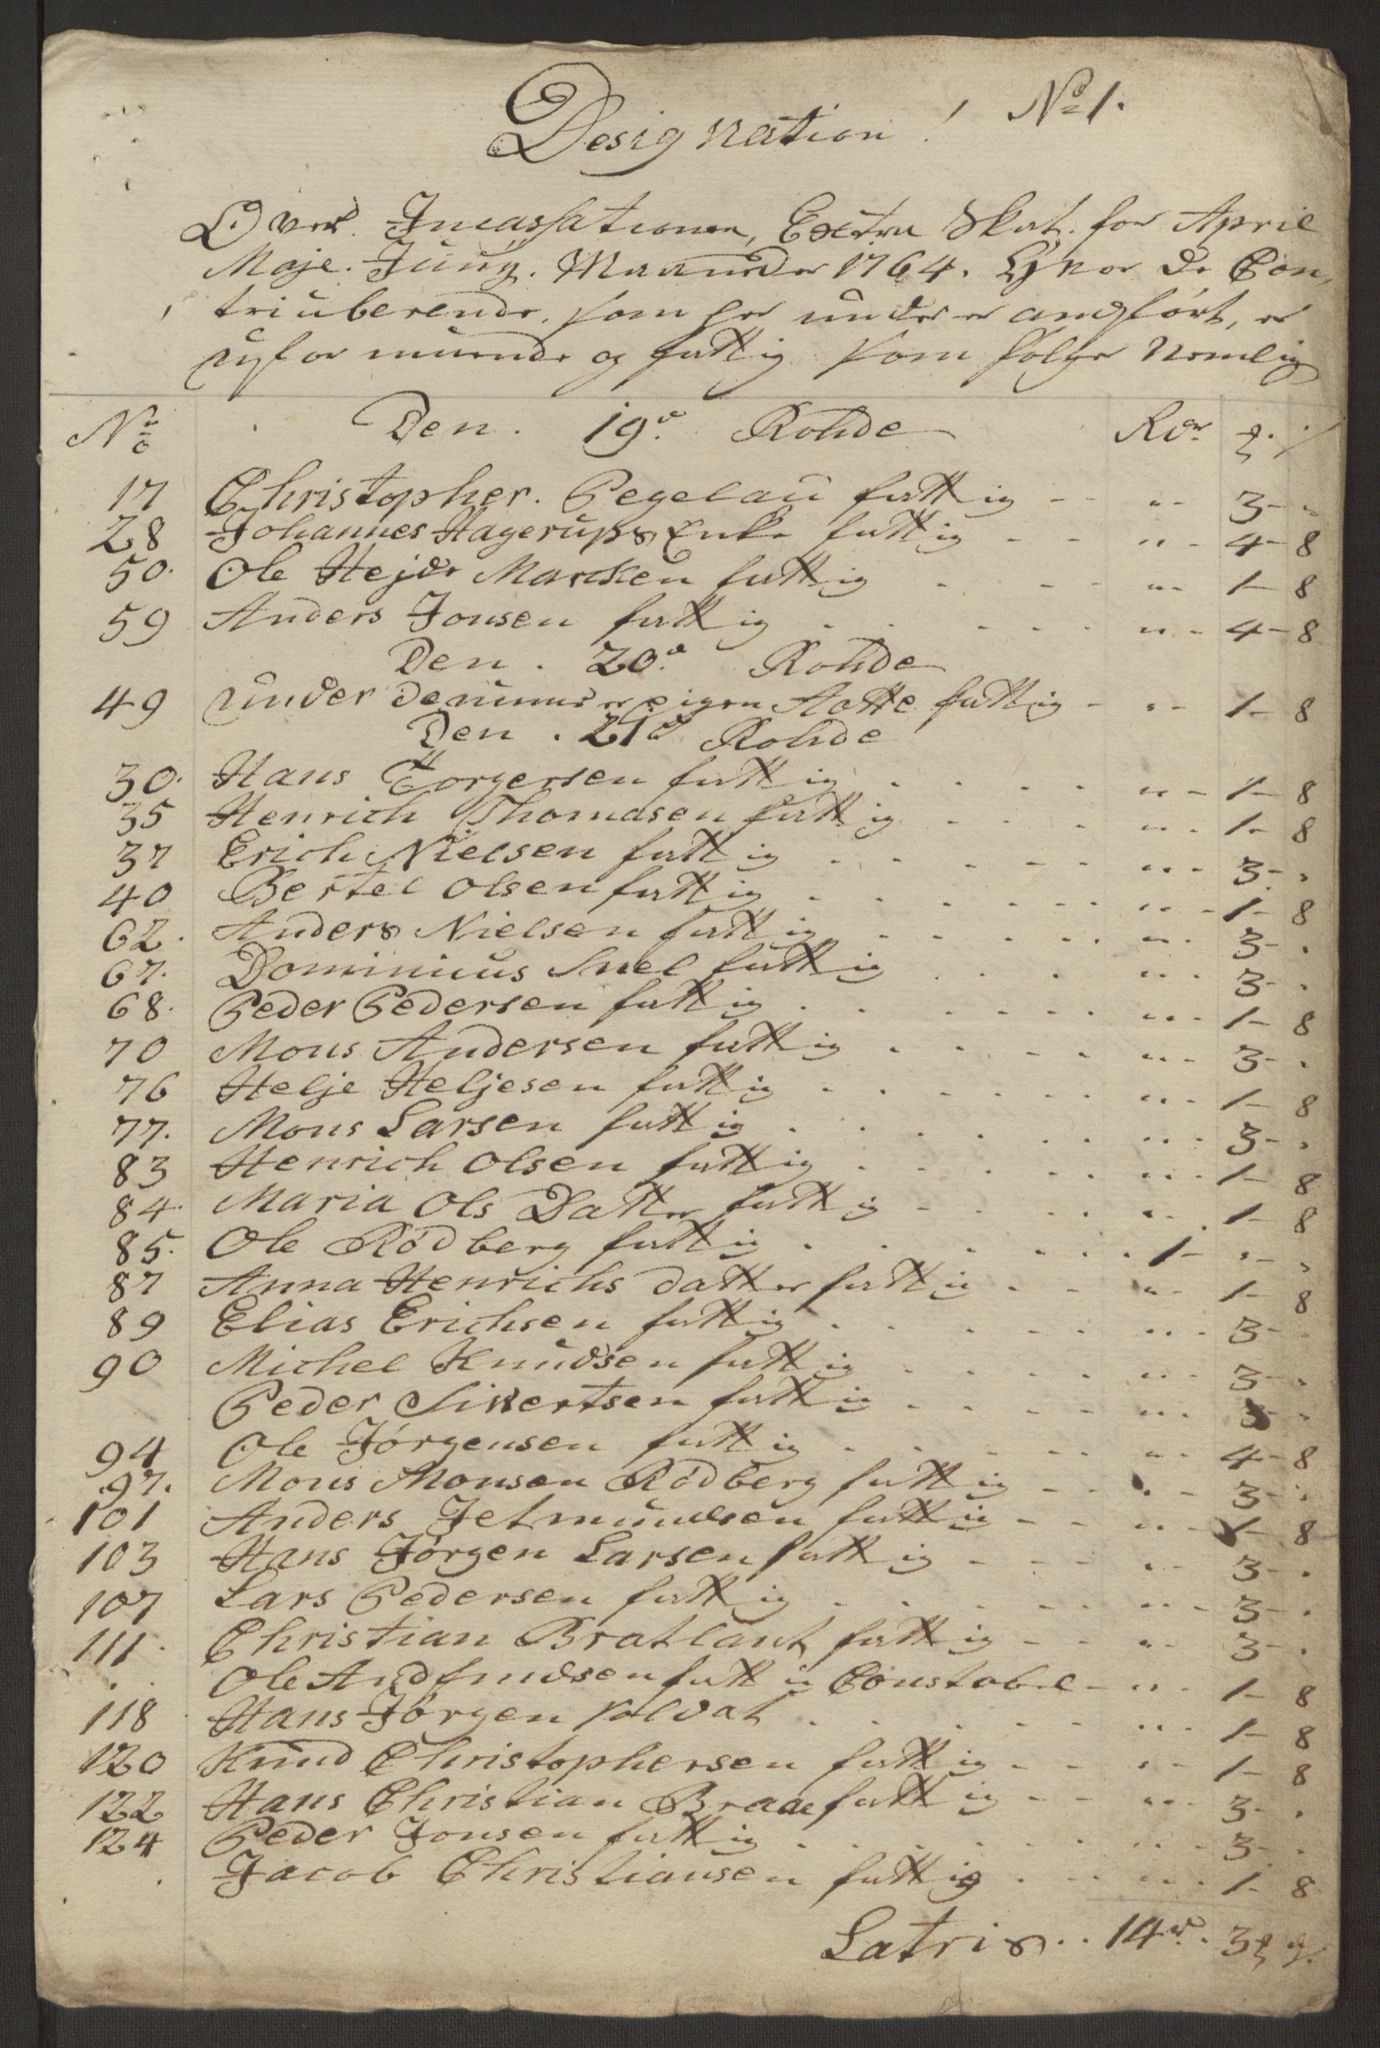 Designation! No 1.
Over. Incassationen, Extra Skat. for April
Maje. Juny. Maaneder 1764. Hvor de Con
triuberende. som her under er anført, er
uformuende og fattig som følger Nemlig
No Den. 19de Rohde Rdr
17 Christopher. Pegelau fattig - - " - 3 - "
28 Johannes Hagerups Enke fattig - - " - 4 - 8
50. Ole Hejde Marcken fattig - - " - 1 - 8
59 Anders Jonsen fattig - - " - 4 - 8
Den. 20de Rohde
49 under de er eigen fattig - " - 1 - 8
Den. 21de Rohde
30. Hans Torgersen fattig - - " - 1 - 8
35 Henrich Thomasen fattig - - " - 1 - 8
37 Erich Nielsen fattig - - " - 3 - "
40 Bertel Olsen fattig - - " - 1 - 8
62. Anders Nielsen fattig - - " - 3 - "
67. Dominicus Snel fattig - - " - 3 - "
68. Peder Pedersen fattig - - " - 1 - 8
70 Mons Andersen fattig - - " - 3 - "
76 Helje Heljesen fattig - - " - 1 - 8
77. Mons Larsen fattig - - " - 3 - "
83 Henrich Olsen fattig - - " - 1 - 8
84. Maria Ols Datter fattig - - " - 1 - 8
85. Ole Rødberg fattig - - 1 - " - "
87 Anna Henrichs datter fattig - - " - 1 - 8
89 Elias Erichsen fattig - - " - 3 - "
90 Michel Knudsen fattig - - " - 3 - "
Peder Sivertsen fattig - - " - 3 - "
94 Ole Jørgensen fattig - - " - 4 - 8
97. Mons Monsen Rødberg fattig - - " - 3 - "
101 Anders Jetmundsen fattig - - " - 1 - 8
103 Hans Jørgen Larsen fattig - - " - 3 - "
107 Lars Pedersen fattig - - " - 3 - "
111. Christian Bratlant fattig - - " - 3 - "
Ole fattig Constabel - " - 1 - 8
118 Hans Jørgen soldat - - " - 1 - 8
120 Knud Christophersen fattig - - " - 1 - 8
122 Hans Christian Braae fattig - - " - 3 - "
124 Peder Jonsen fattig - - " - 3 - "
Jacob Christiansen fattig - - " - 1 - 8
Latris.. 14 r. 3